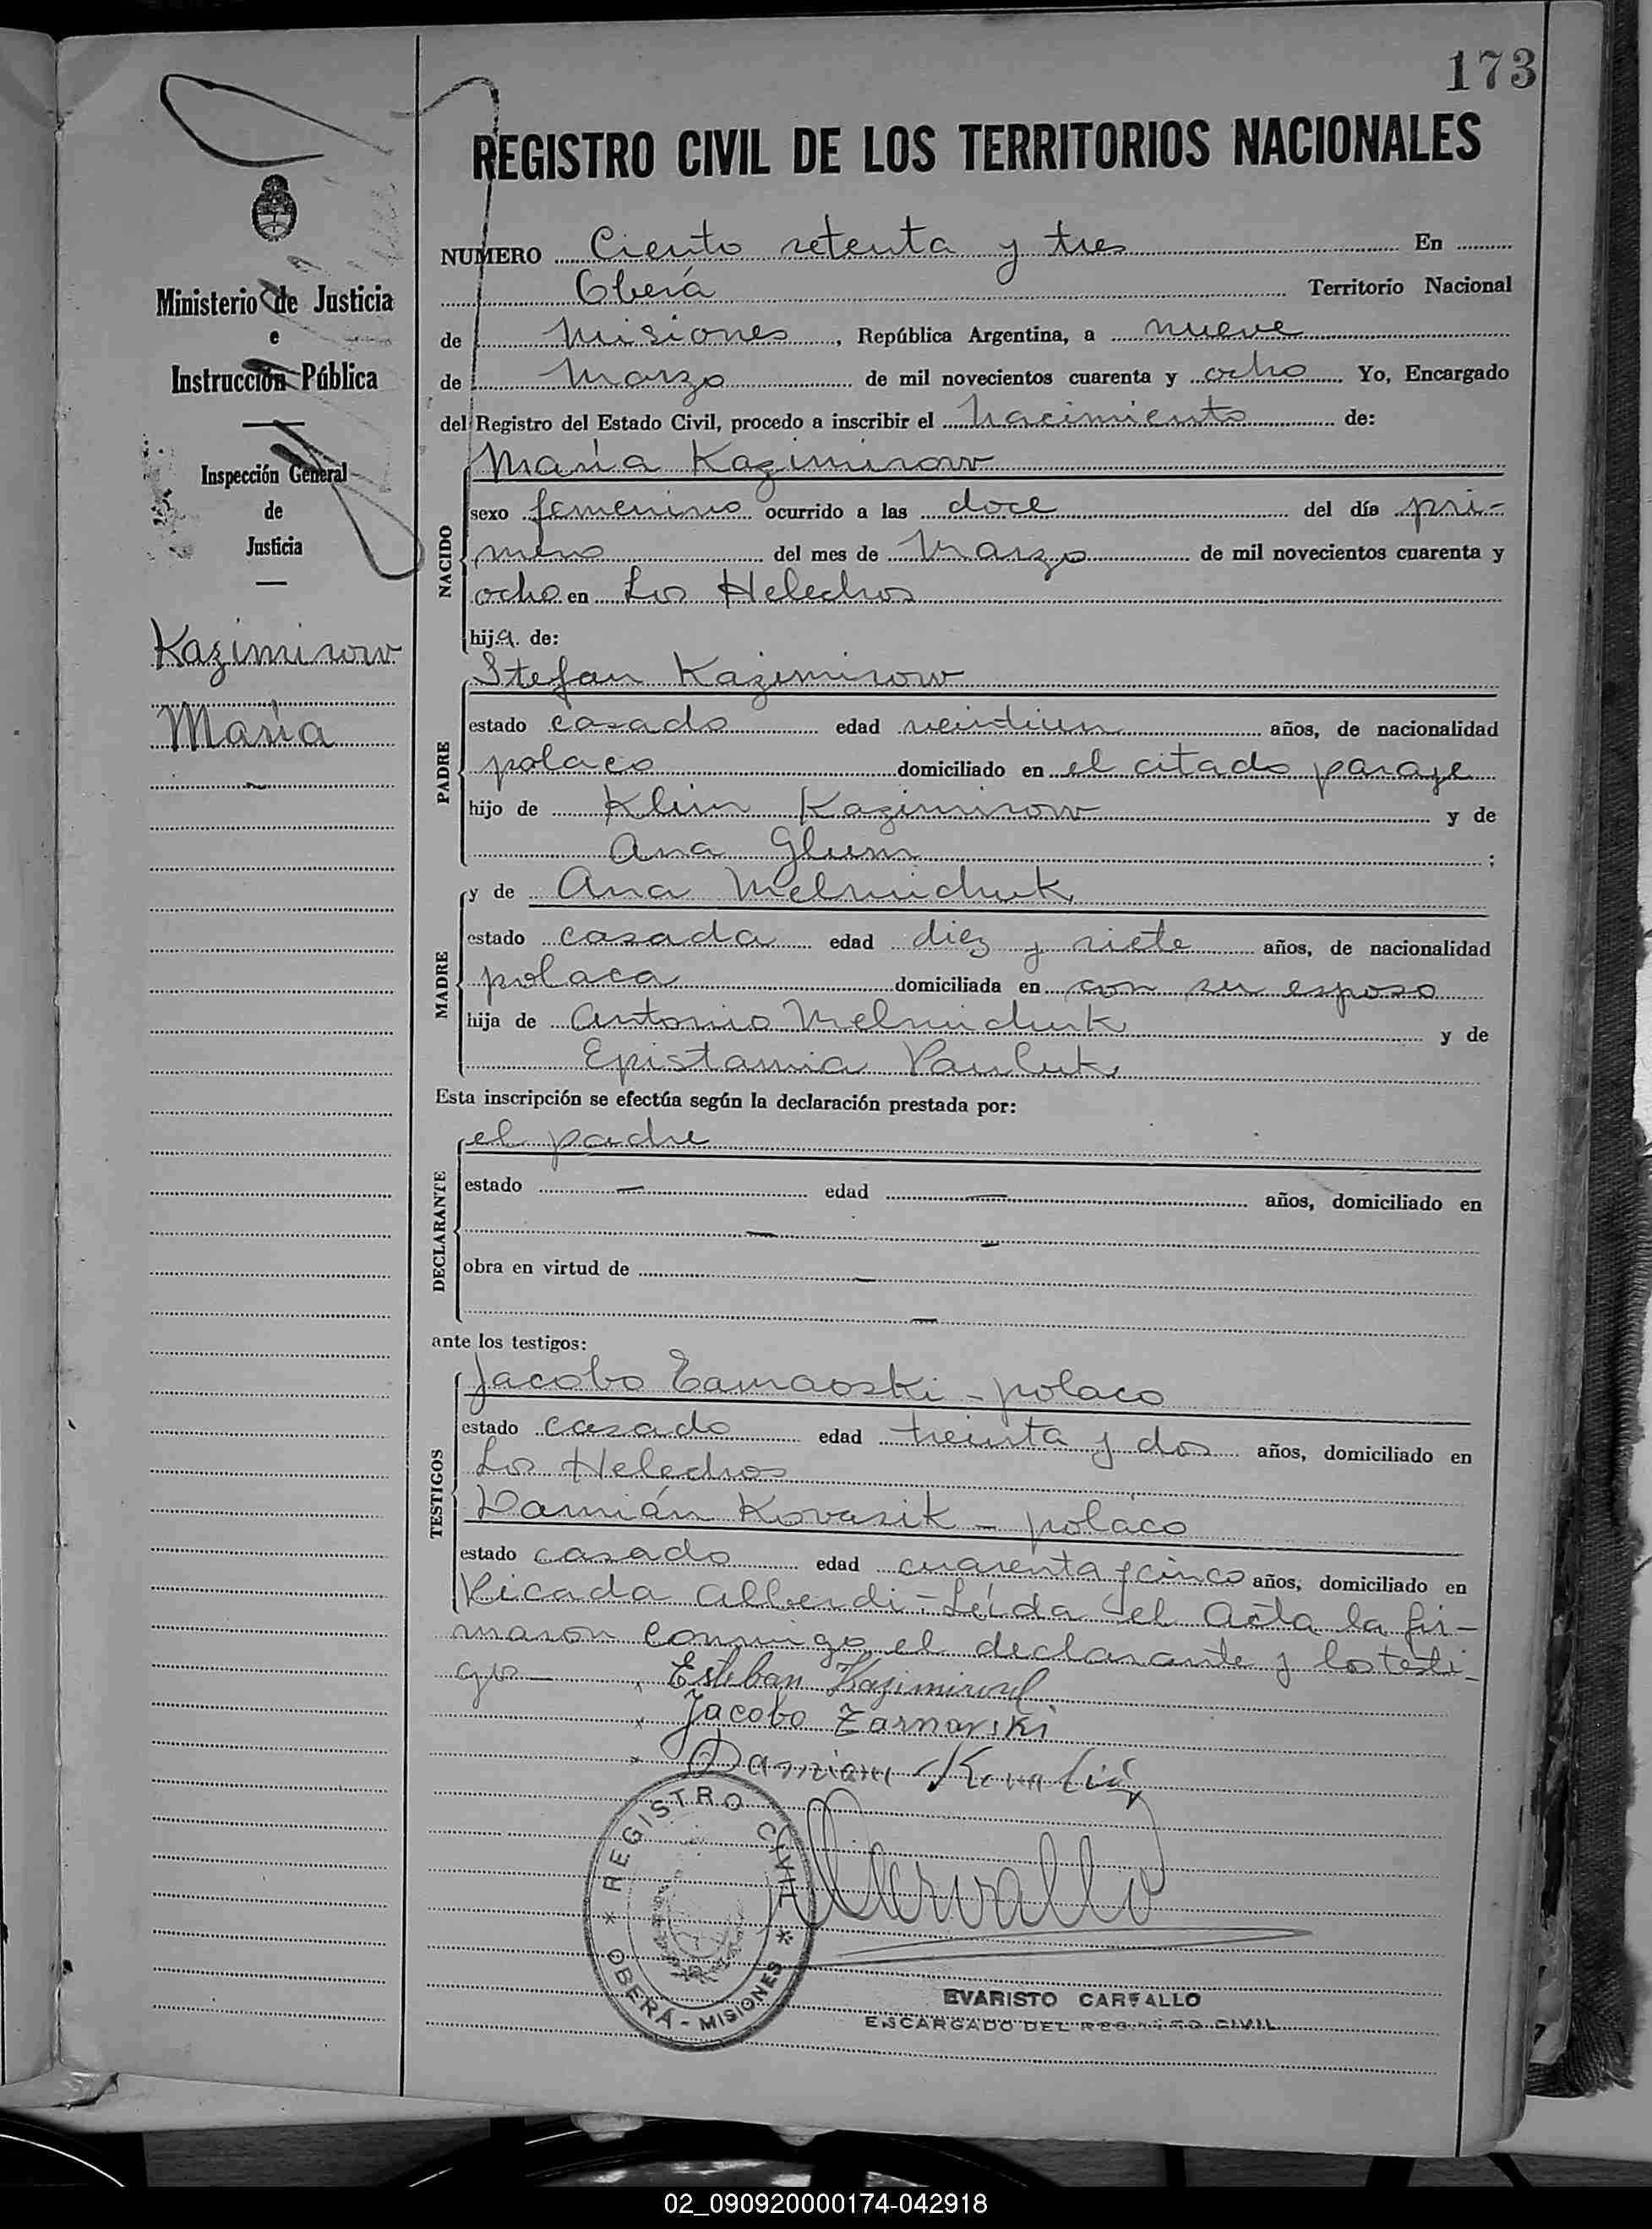 173
REGISTRO CIVIL DE LOS TERRITORIOS NACIONALES
Ministerio de Justicia
e
Instrucción Pública
Inspección General
de
Justicia
Kazimirow
María
NUMERO Ciento setenta y tres En
Oberá Territorio Nacional
de Misiones, República Argentina, a nueve
de Marzo de mil novecientos cuarenta y ocho Yo, Encargado
del Registro del Estado Civil, procedo a inscribir el Nacimiento de:
NACIDO
María Kazimirow
sexo femenino ocurrido a las doce del día pri-
mero del mes de Marzo de mil novecientos cuarenta y
ocho en Los Helechos
hija de:
PADRE
Stefan Kazimirow
estado casado edad veintiun años, de nacionalidad
polaco domiciliado en el citado paraje
hijo de Klim Kazimirow y de
Ana Glum;
MADRE
y de Ana Melnichuk
estado casada edad diez y siete años, de nacionalidad
polaca domiciliada en con su esposo
hija de Antonio Melnichuk y de
Epistamia Pauluk
Esta inscripción se efectúa según la declaración prestada por:
DECLARANTE
el padre
estado — edad — años, domiciliado en
— —
obra en virtud de —
—
ante los testigos:
TESTIGOS
Jacobo - polaco
estado casado edad treinta y dos años, domiciliado en
Los Helechos
Damián Kovasik - polaco
estado casado edad cuarenta y cinco años, domiciliado en
Picada Alberdi - Leída el Acta la fir-
maron conmigo el declarante y los testi-
gos —
Esteban
Jacobo Zarnarski
REGISTRO CIVIL
OBERÁ - MISIONES
Carvallo
EVARISTO CARVALLO
ENCARGADO DEL REGISTRO CIVIL
02_090920000174-042918